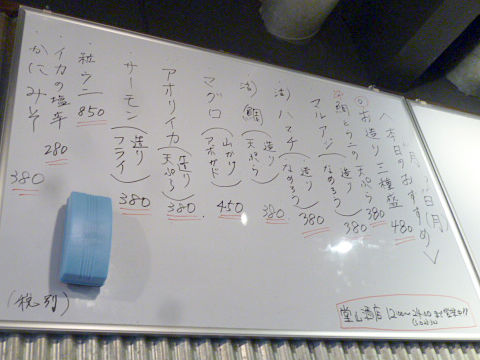 〈本日のおすすめ〉
お造り三種盛 480
鯛とウニの天ぷら 380
マルアジ(造り なめろう) 380
活ハマチ(造り なめろう) 380
活鯛(造り 天ぷら) 380
マグロ(山かけ アボカド) 450
アオリイカ(造り 天ぷら) 380
サーモン(造り フライ) 380
粒ウニ 850
イカの塩辛 280
かにみそ 380
(税別)